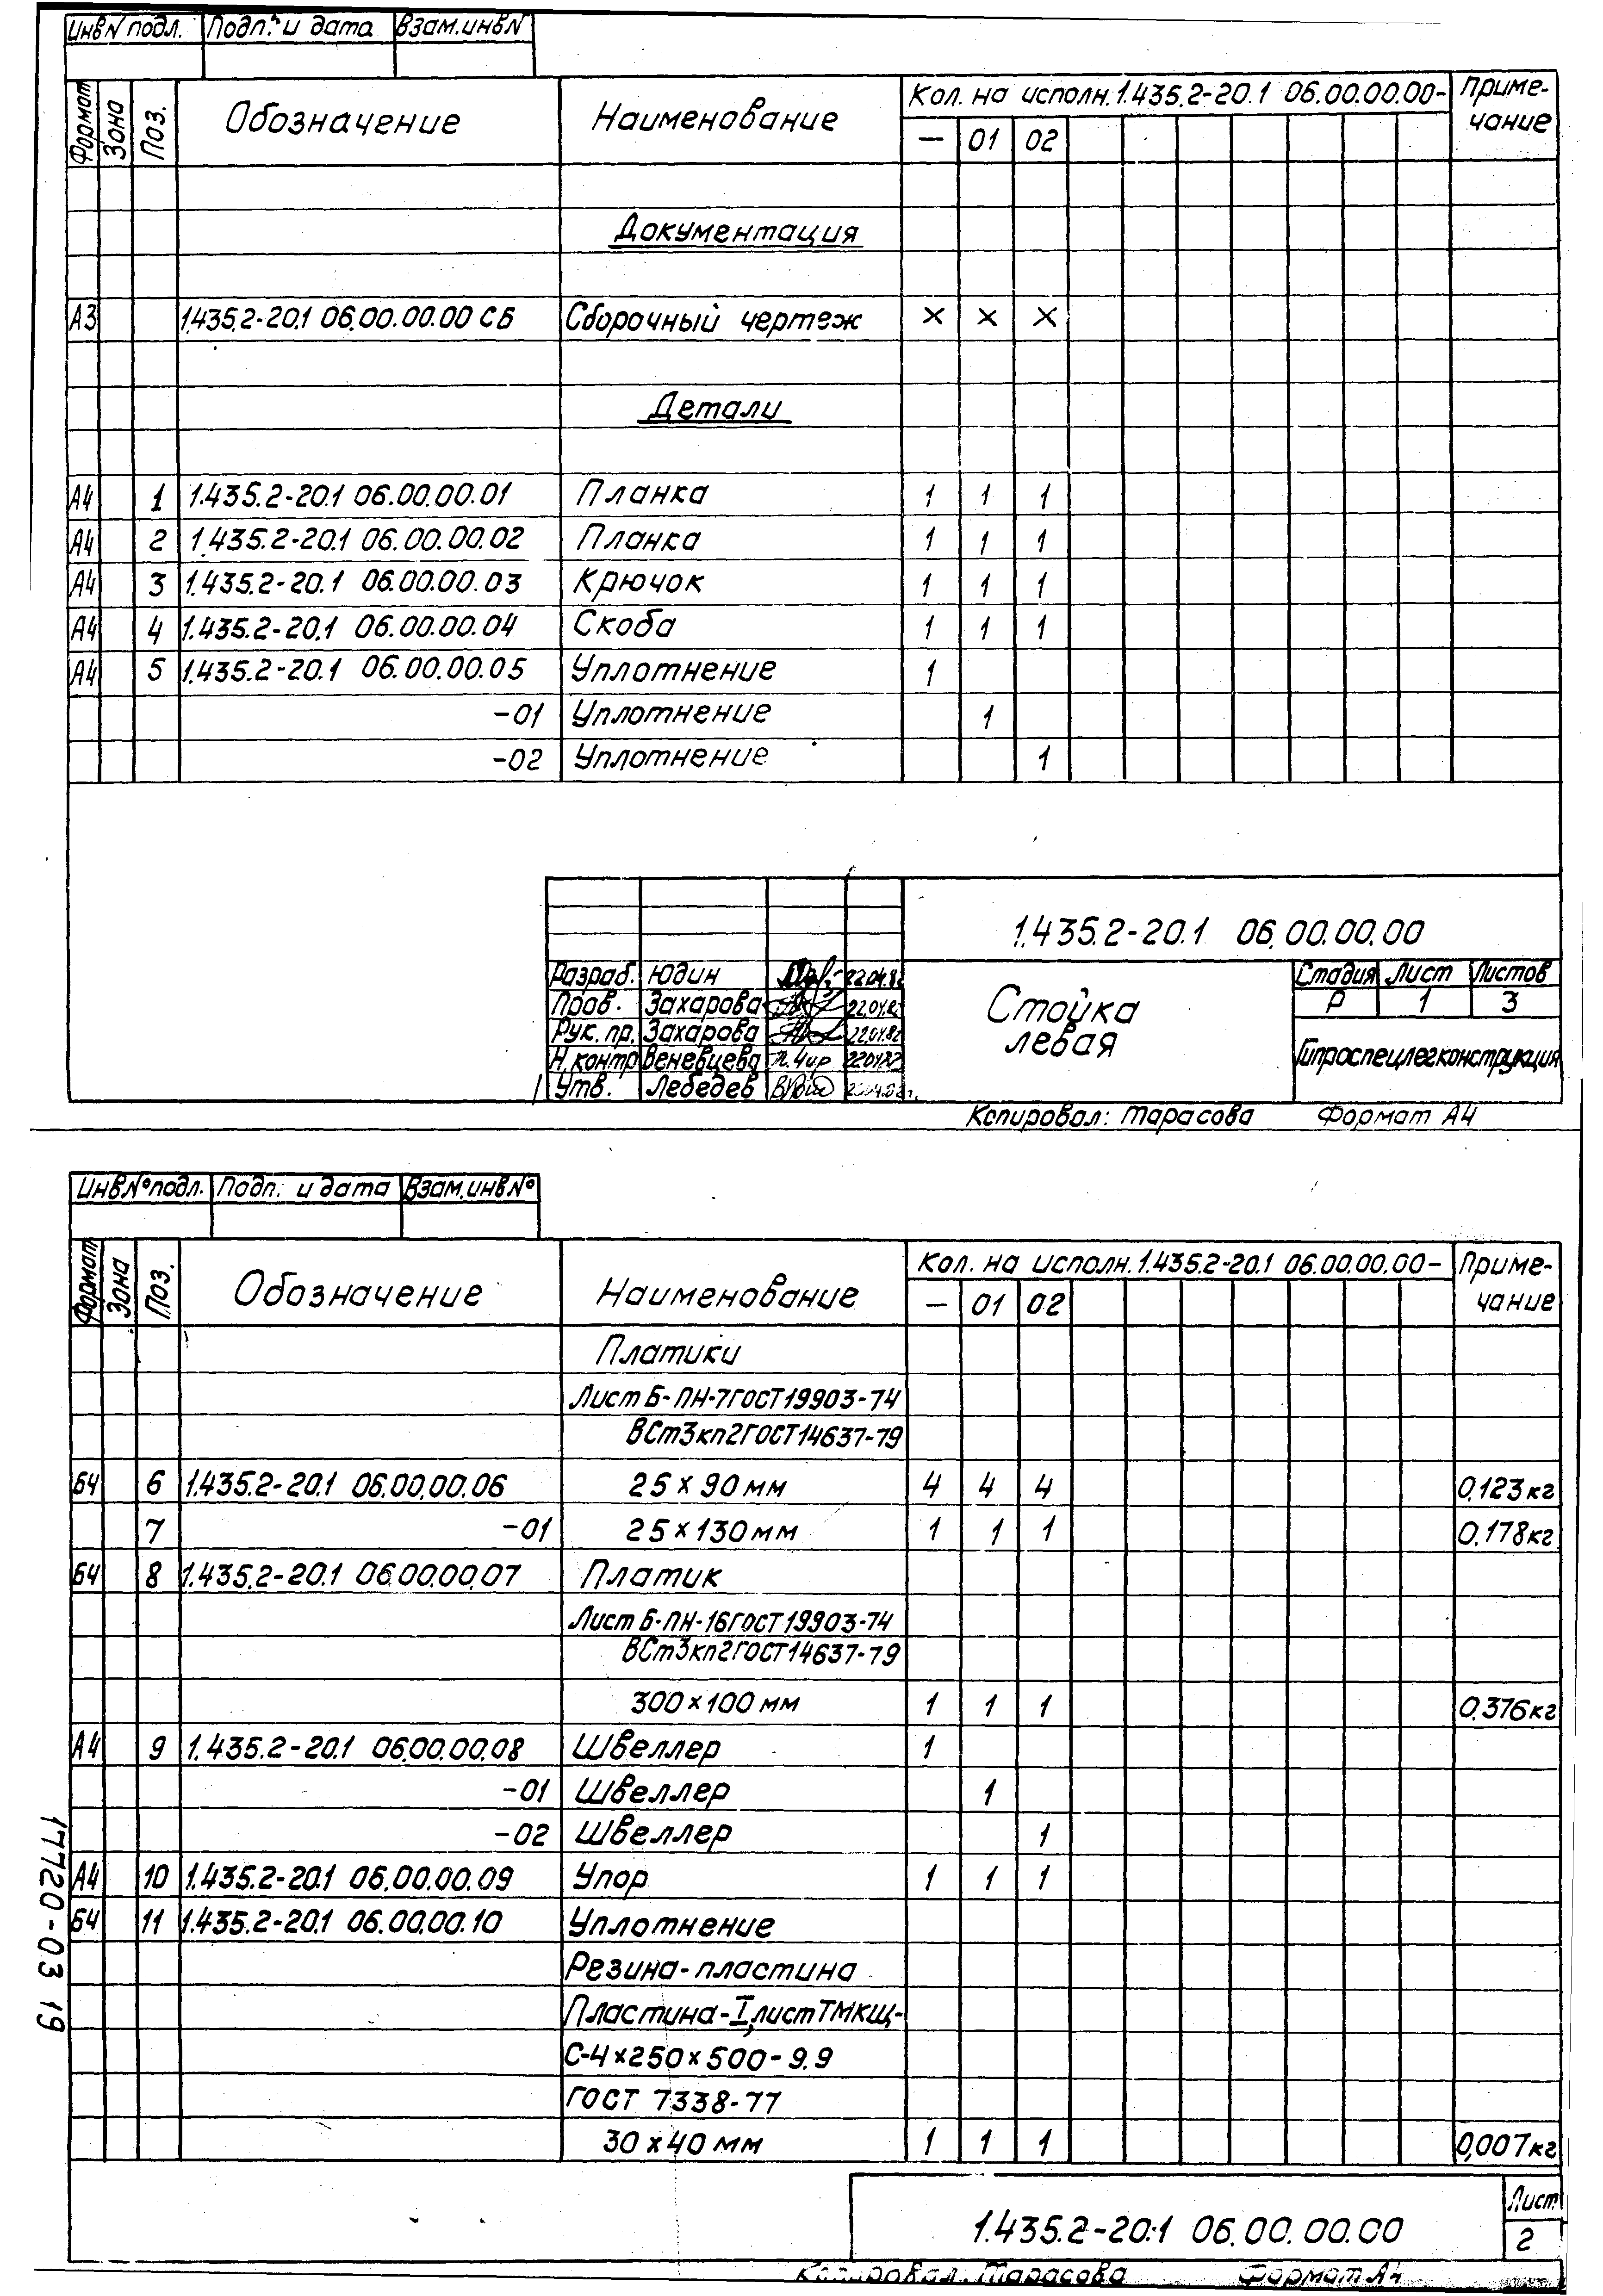 Инв N подл. Подп. и дата Взам. инв N
Формат Зона Поз. Обозначение Наименование Кол. на исполн. 1.435.2-20.1 06.00.00.00- Приме-
— 01 02 чание
Документация
А3 1.435.2-20.1 06.00.00.00 СБ Сборочный чертеж × × ×
Детали
А4 1 1.435.2-20.1 06.00.00.01 Планка 1 1 1
А4 2 1.435.2-20.1 06.00.00.02 Планка 1 1 1
А4 3 1.435.2-20.1 06.00.00.03 Крючок 1 1 1
А4 4 1.435.2-20.1 06.00.00.04 Скоба 1 1 1
А4 5 1.435.2-20.1 06.00.00.05 Уплотнение 1
-01 Уплотнение 1
-02 Уплотнение 1
1.435.2-20.1 06.00.00.00
Разраб. Юдин 22.04.82
Пров. Захарова 22.04.82
Рук. пр. Захарова 22.04.82
Н. контр Веневцева 22.04.82
Утв. Лебедев
Стойка
левая
Стадия Лист Листов
Р 1 3
Гипроспецлегконструкция
Копировал: Тарасова Формат А4
Инв N° подл. Подп. и дата Взам. инв N°
Формат Зона Поз. Обозначение Наименование Кол. на исполн. 1.435.2-20.1 06.00.00.00- Приме-
— 01 02 чание
Платики
Лист Б-ПН-7 ГОСТ 19903-74
ВСт3кп2 ГОСТ 14637-79
БЧ 6 1.435.2-20.1 06.00.00.06 25 × 90 мм 4 4 4 0,123 кг
7 -01 25 × 130 мм 1 1 1 0,178 кг
БЧ 8 1.435.2-20.1 06.00.00.07 Платик
Лист Б-ПН-16 ГОСТ 19903-74
ВСт3кп2 ГОСТ 14637-79
300 × 100 мм 1 1 1 0,376 кг
А4 9 1.435.2-20.1 06.00.00.08 Швеллер 1
-01 Швеллер 1
-02 Швеллер 1
А4 10 1.435.2-20.1 06.00.00.09 Упор 1 1 1
БЧ 11 1.435.2-20.1 06.00.00.10 Уплотнение
Резина-пластина
Пластина-I, лист ТМКЩ-
С-4×250×500-9.9
ГОСТ 7338-77
30 × 40 мм 1 1 1 0,007 кг
17720-03 19
1.435.2-20.1 06.00.00.00
Лист
2
Копировал. Тарасова Формат А4